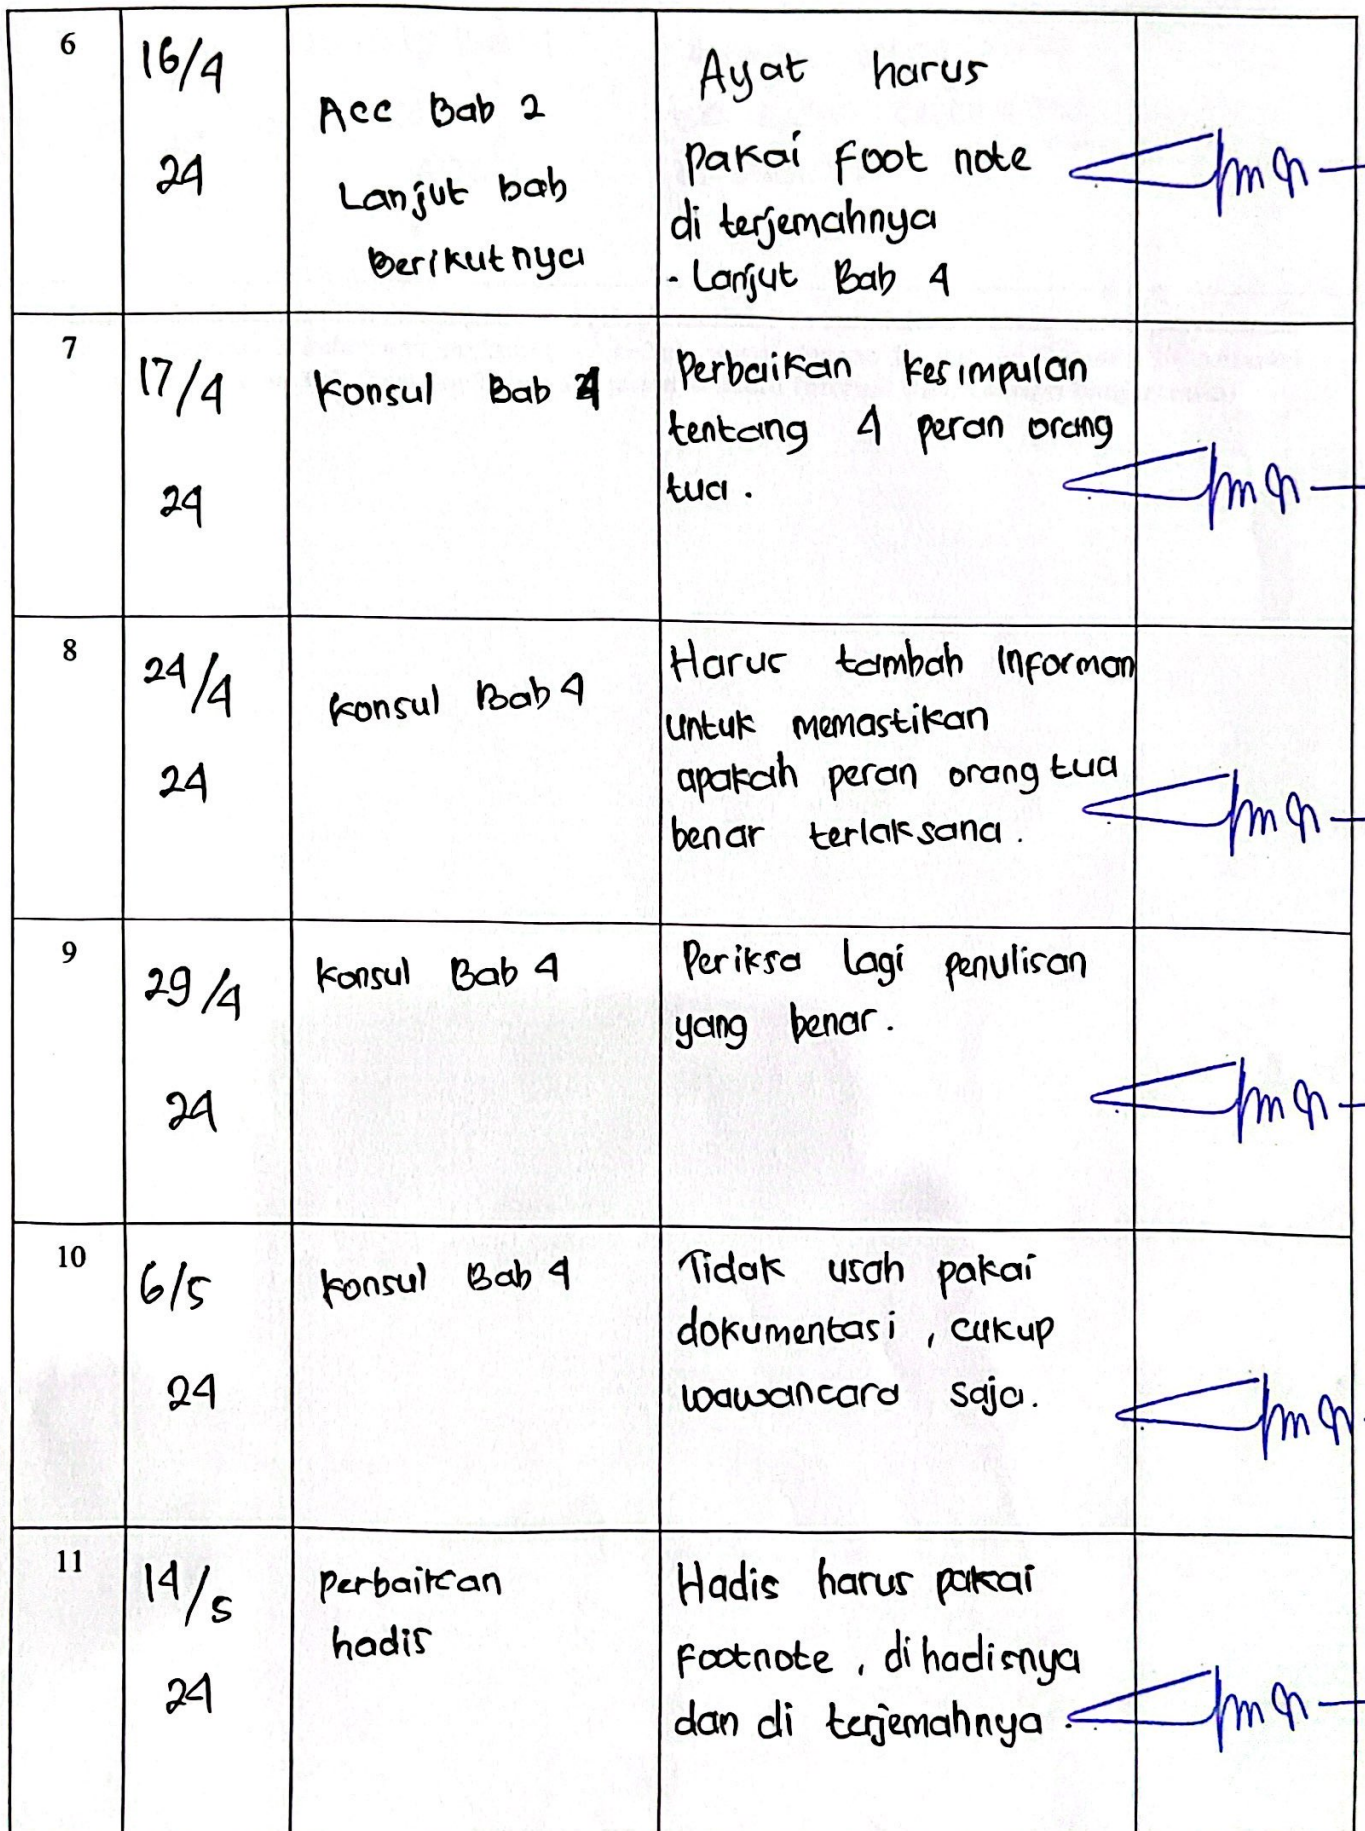 6
16/4
24
Acc Bab 2
Lanjut bab
Berikutnya
Ayat harus
pakai Foot note
di terjemahnya
- Lanjut Bab 4
7
17/4
24
Konsul Bab 4
Perbaikan kesimpulan
tentang 4 peran orang
tua.
8
24/4
24
Konsul Bab 4
Harus tambah Informan
untuk memastikan
apakah peran orang tua
benar terlaksana.
9
29/4
24
Konsul Bab 4
Periksa lagi penulisan
yang benar.
10
6/5
24
Konsul Bab 4
Tidak usah pakai
dokumentasi, cukup
wawancara saja.
11
14/5
24
Perbaikan
hadis
Hadis harus pakai
Footnote, di hadisnya
dan di terjemahnya.